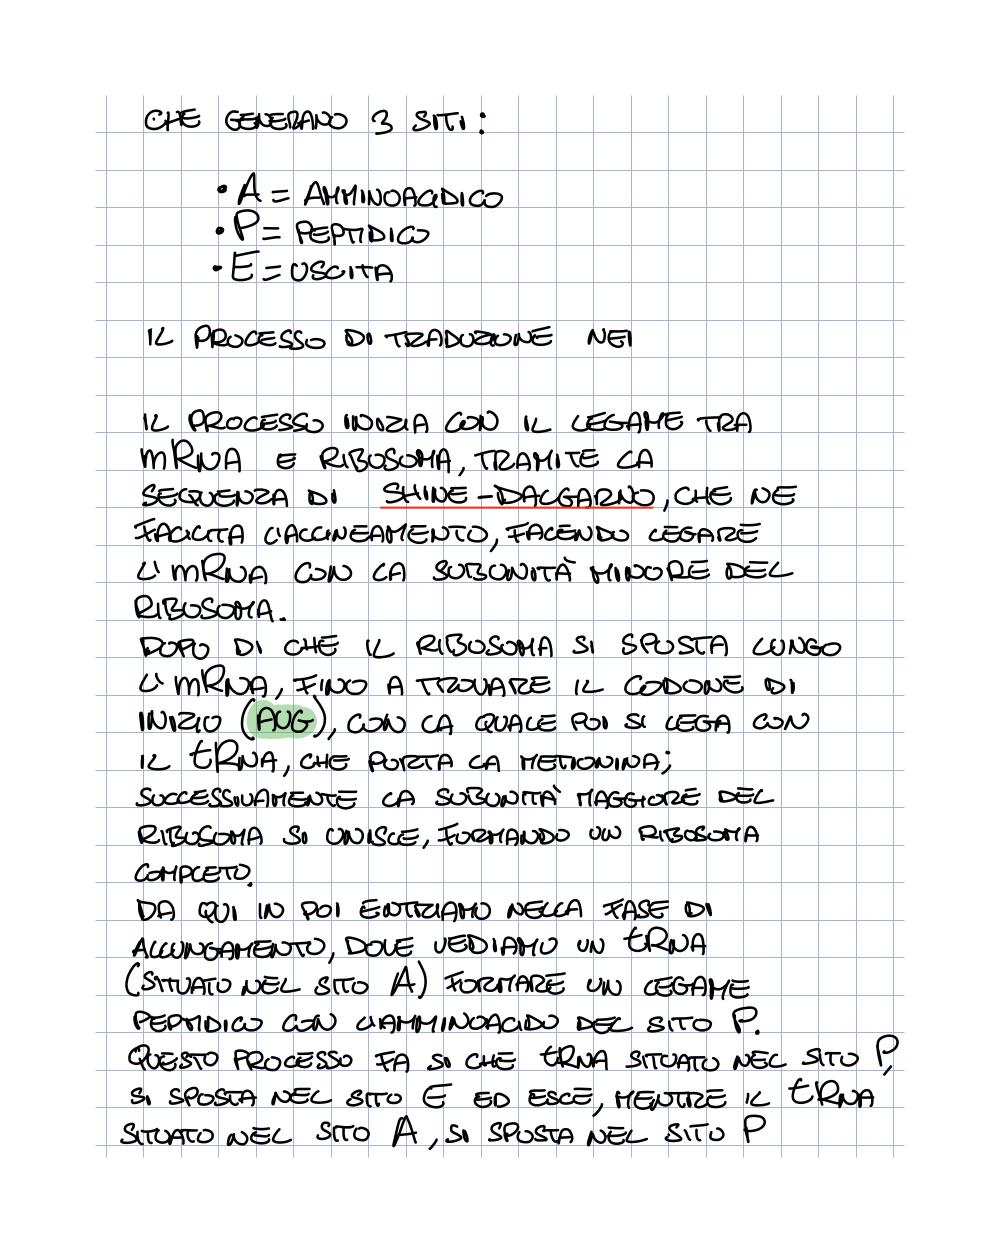 CHE GENERANO 3 SITI:
• A = AMMINOACIDICO
• P = PEPTIDICO
• E = USCITA
IL PROCESSO DI TRADUZIONE NEI
IL PROCESSO INIZIA CON IL LEGAME TRA
mRNA E RIBOSOMA, TRAMITE LA
SEQUENZA DI SHINE-DALGARNO, CHE NE
FACILITA L'ALLINEAMENTO, FACENDO LEGARE
L'mRNA CON LA SUBUNITÀ MINORE DEL
RIBOSOMA.
DOPO DI CHE IL RIBOSOMA SI SPOSTA LUNGO
L'mRNA, FINO A TROVARE IL CODONE DI
INIZIO (AUG), CON LA QUALE POI SI LEGA CON
IL tRNA, CHE PORTA LA METIONINA;
SUCCESSIVAMENTE LA SUBUNITÀ MAGGIORE DEL
RIBOSOMA SI UNISCE, FORMANDO UN RIBOSOMA
COMPLETO.
DA QUI IN POI ENTRIAMO NELLA FASE DI
ALLUNGAMENTO, DOVE VEDIAMO UN tRNA
(SITUATO NEL SITO A) FORMARE UN LEGAME
PEPTIDICO CON L'AMMINOACIDO DEL SITO P.
QUESTO PROCESSO FA SI CHE tRNA SITUATO NEL SITO P,
SI SPOSTA NEL SITO E ED ESCE, MENTRE IL tRNA
SITUATO NEL SITO A, SI SPOSTA NEL SITO P